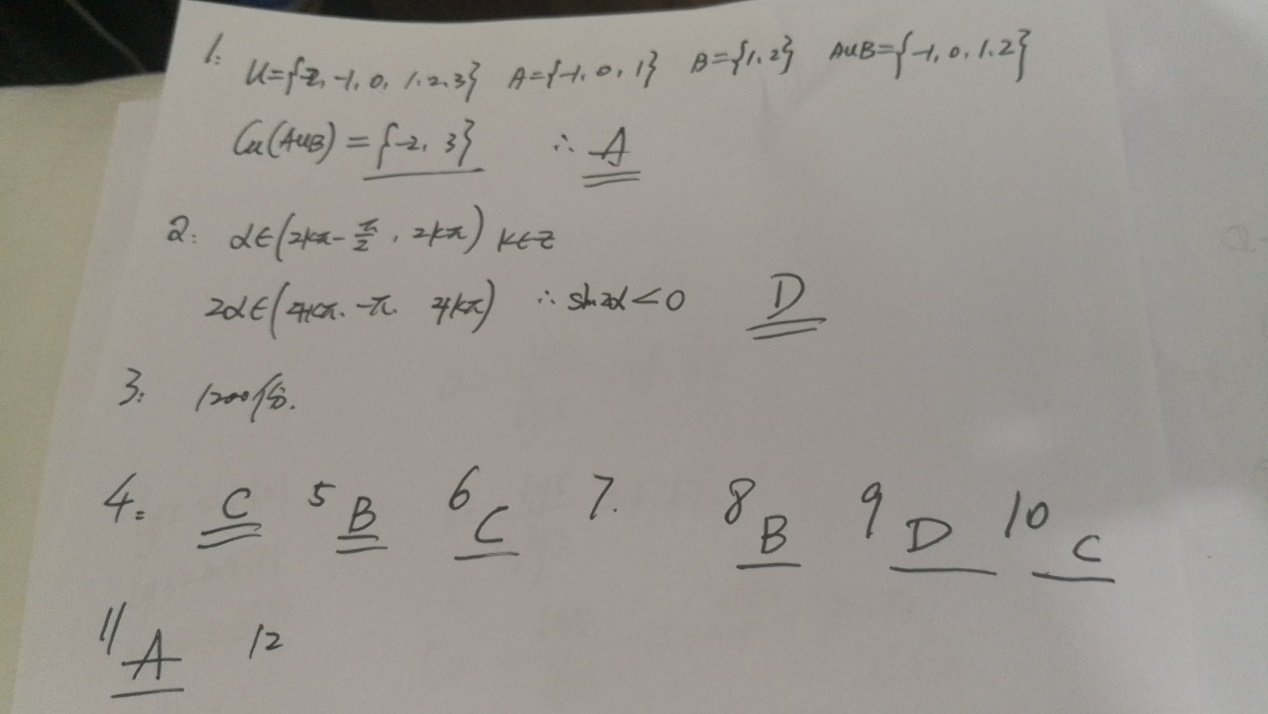 1. U={-2,-1,0,1.2.3} A={-1.0,1} B={1.2} AUB={-1,0.1.2}
∁u(AUB)={-2,3} ∴ A
2. α∈(2kπ-π/2,2kπ) k∈Z
2α∈(4kπ.-π. 4kπ) ∴ sin2α<0 D
3. 1200份.
4. C 5 B 6 C 7. 8 B 9 D 10 C
11 A 12